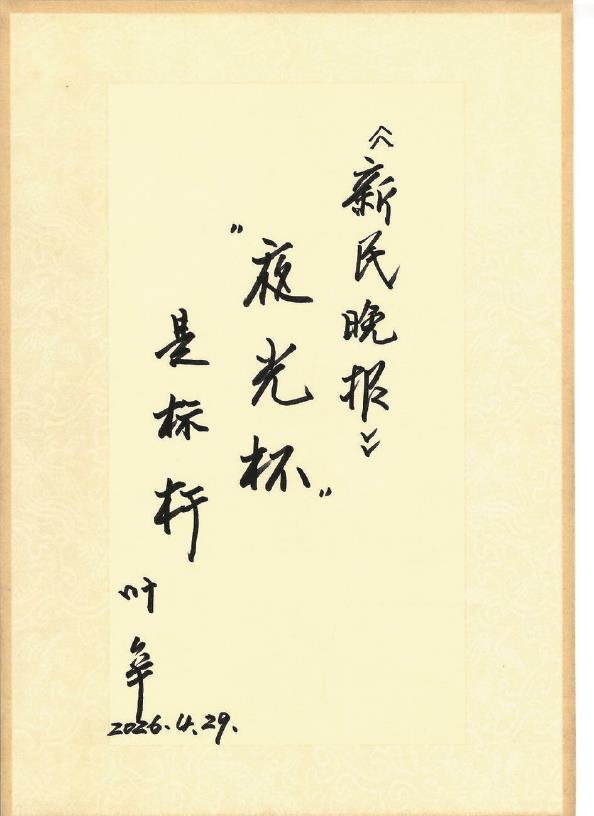 《新民晚报》
"夜光杯"
是标杆
叶辛
2026.4.29.